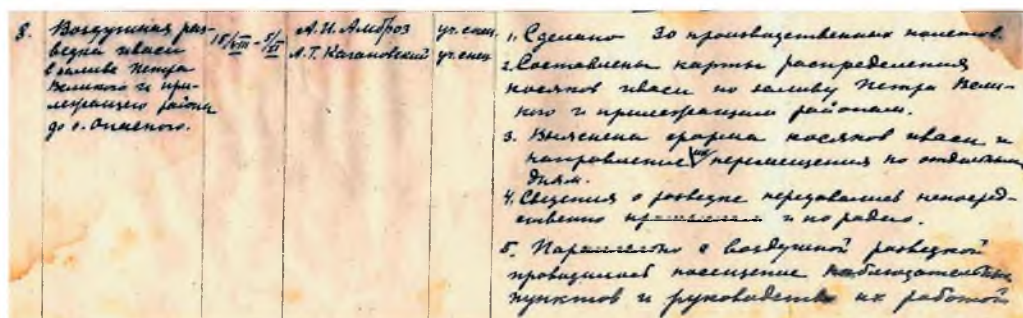 8.
Воздушная раз-
ведка иваси
в заливе Петра
Великого и при-
лежащего района
до о. Опасного.
15/VIII - 5/XI
А.И. Амброз
А.Т. Кагановский
уч. спец.
уч. спец
1. Сделано 30 производственных полетов.
2. Составлены карты распределения
косяков иваси по заливу Петра Вели-
кого и прилежащим районам.
3. Выяснена форма косяков иваси и
направление их перемещения по отдельным
дням.
4. Сведения о разведке передавались непосред-
ственно и по радио.
5. Параллельно с воздушной разведкой
проводилось посещение наблюдательных
пунктов и руководство их работой